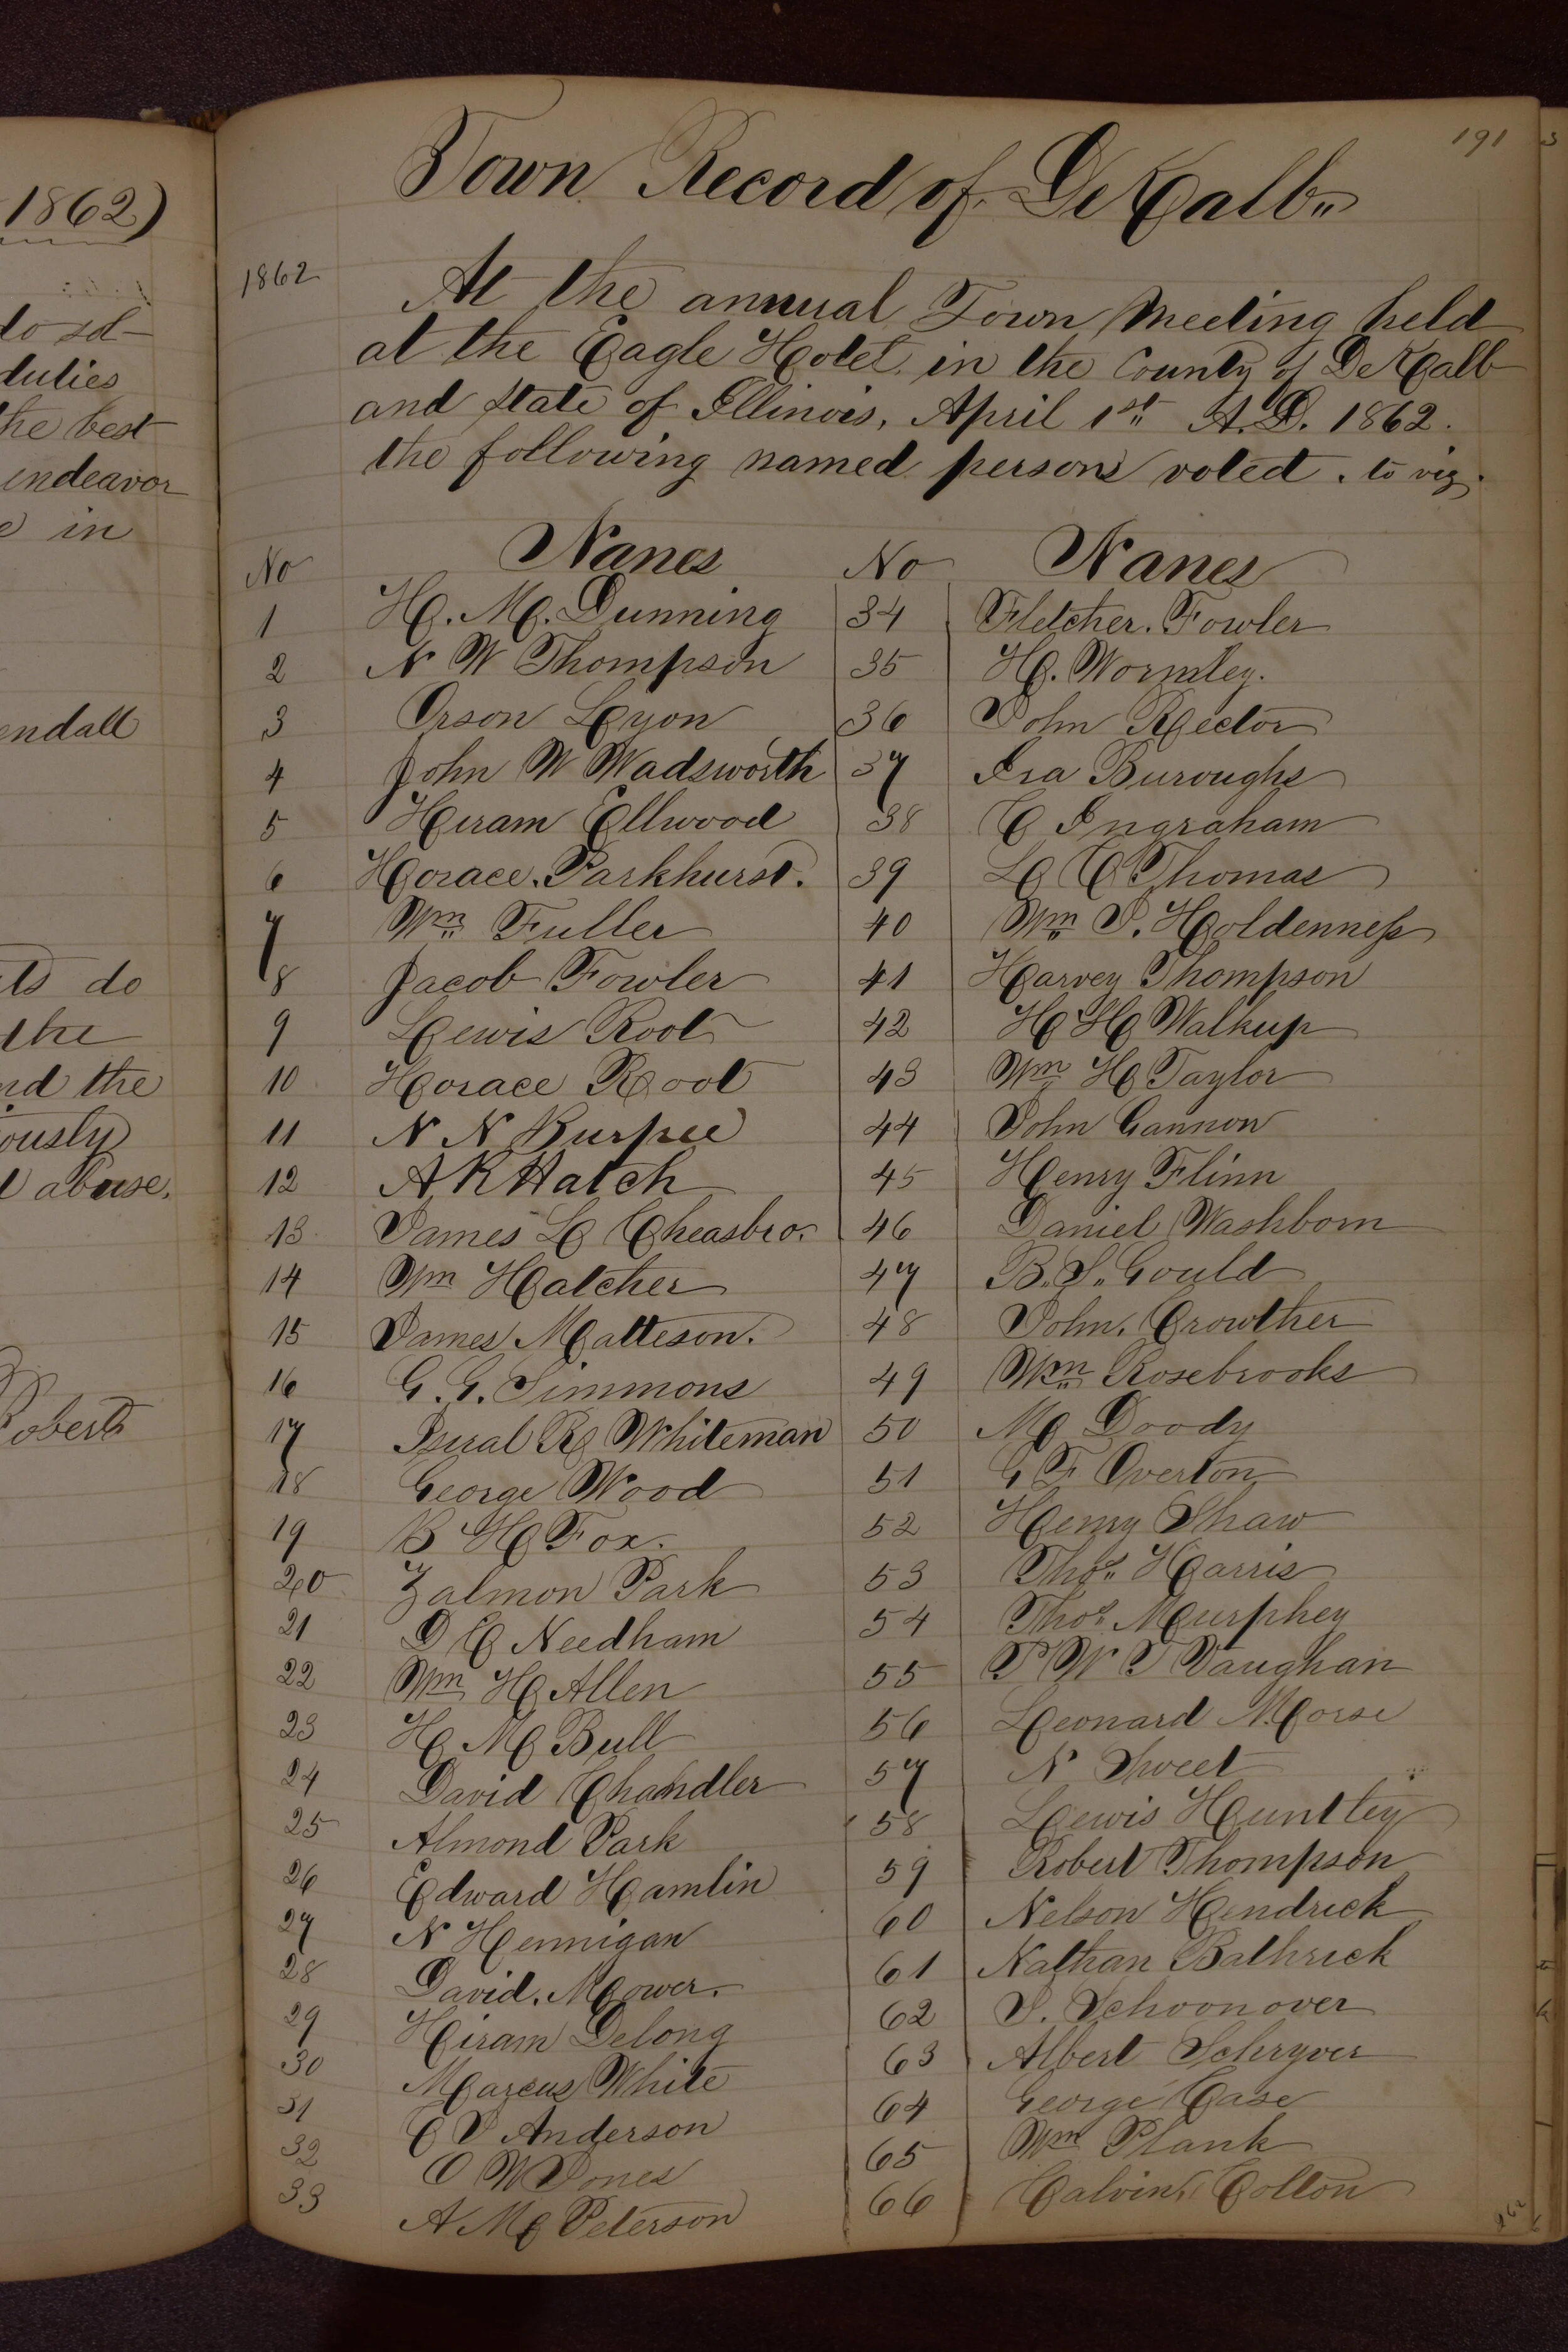 1862)
to sd
duties
the best
endeavor
e in
endall
ts do
the
nd the
iously
l abuse.
Roberts
191
Town Record of DeKalb
1862
At the annual Town Meeting held
at the Eagle Hotel in the County of DeKalb
and State of Illinois, April 1st A.D. 1862.
the following named persons voted. to viz.
No Names No Names
1 H. M. Dunning 34 Fletcher. Fowler
2 N W Thompson 35 H. Wormley.
3 Orson Lyon 36 John Rector
4 John W Wadsworth 37 Ira Buroughs
5 Hiram Ellwood 38 C Ingraham
6 Horace. Parkhurst. 39 L C Thomas
7 Wm Fuller 40 Wm P. Holdenness
8 Jacob Fowler 41 Harvey Thompson
9 Lewis Root 42 H H Walkup
10 Horace Root 43 Wm H Taylor
11 N N Burpee 44 John Gannon
12 A K Hatch 45 Henry Flinn
13 James L Cheasbro. 46 Daniel Washborn
14 Wm Hatcher 47 B. S. Gould
15 James Matteson. 48 John. Crowther
16 G. G. Simmons 49 Wm Rosebrooks
17 Isural R Whiteman 50 M Doody
18 George Wood 51 G F Overton
19 B H Fox. 52 Henry Shaw
20 Zalmon Park 53 Thos Harris
21 D C Needham 54 Thos Murphey
22 Wm H Allen 55 P W T Vaughan
23 H M Bull 56 Leonard Morse
24 David Chandler 57 N Sweet
25 Almond Park 58 Lewis Huntley
26 Edward Hamlin 59 Robert Thompson
27 N Hennigan 60 Nelson Hendrick
28 David. Mower. 61 Nathan Bathrick
29 Hiram Delong 62 J. Schoonover
30 Marcus White 63 Albert Schryver
31 C J Anderson 64 George Case
32 O W Jones 65 Wm Plank
33 A M Peterson 66 Calvin Colton